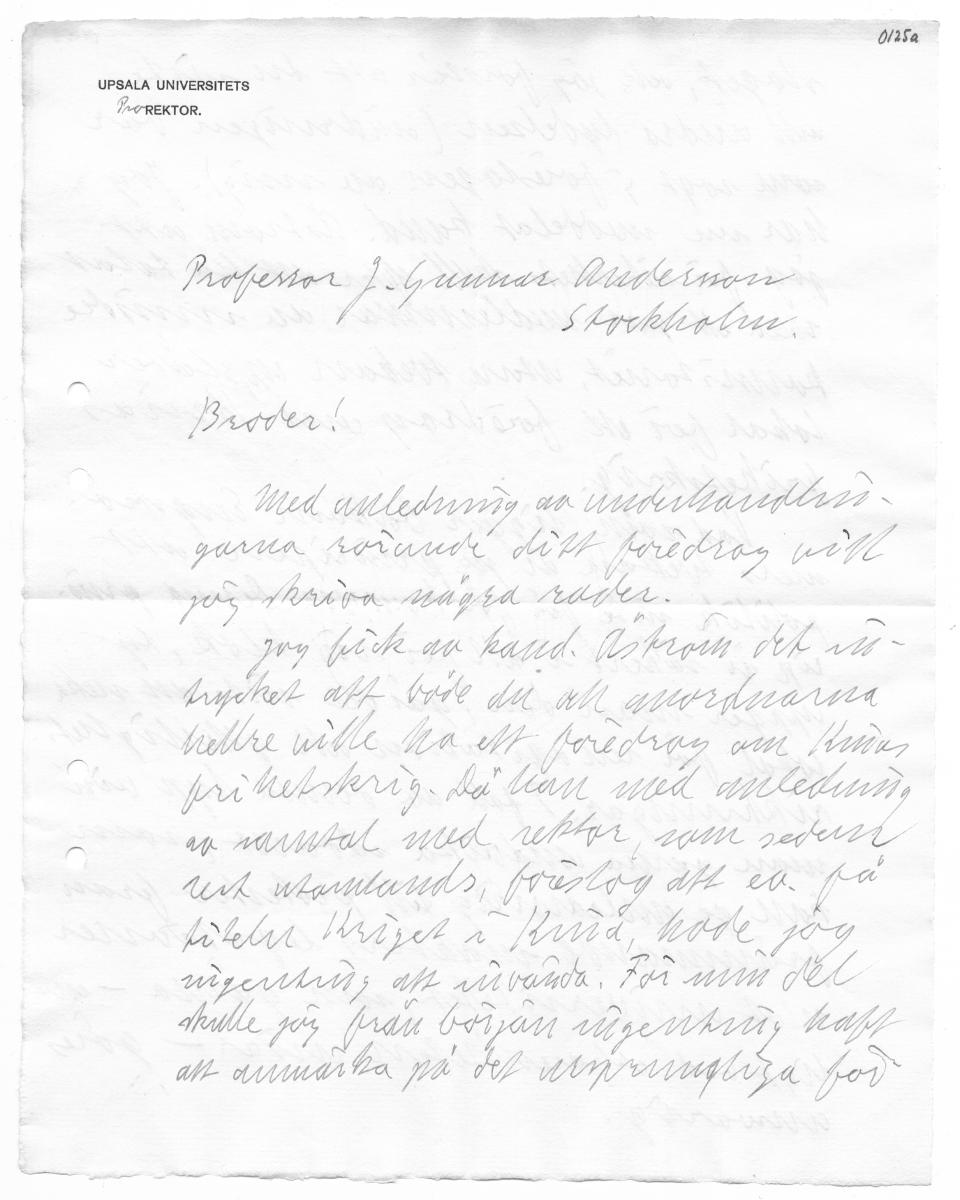 0125a
UPSALA UNIVERSITETS
ProREKTOR.
Professor J. Gunnar Andersson
Stockholm.
Broder!
Med anledning av underhandlin-
garna rörande ditt föredrag vill
jag skriva några rader.
Jag fick av kand. Åström det in-
trycket att både du och anordnarna
hellre ville ha ett föredrag om Kinas
frihetskrig. Då han med anledning
av samtal med rektor, som sedan
rest utomlands, föreslog att ev. få
titeln Kriget i Kina, hade jag
ingenting att invända. För min del
skulle jag från början ingenting haft
att anmärka på det ursprungliga för-